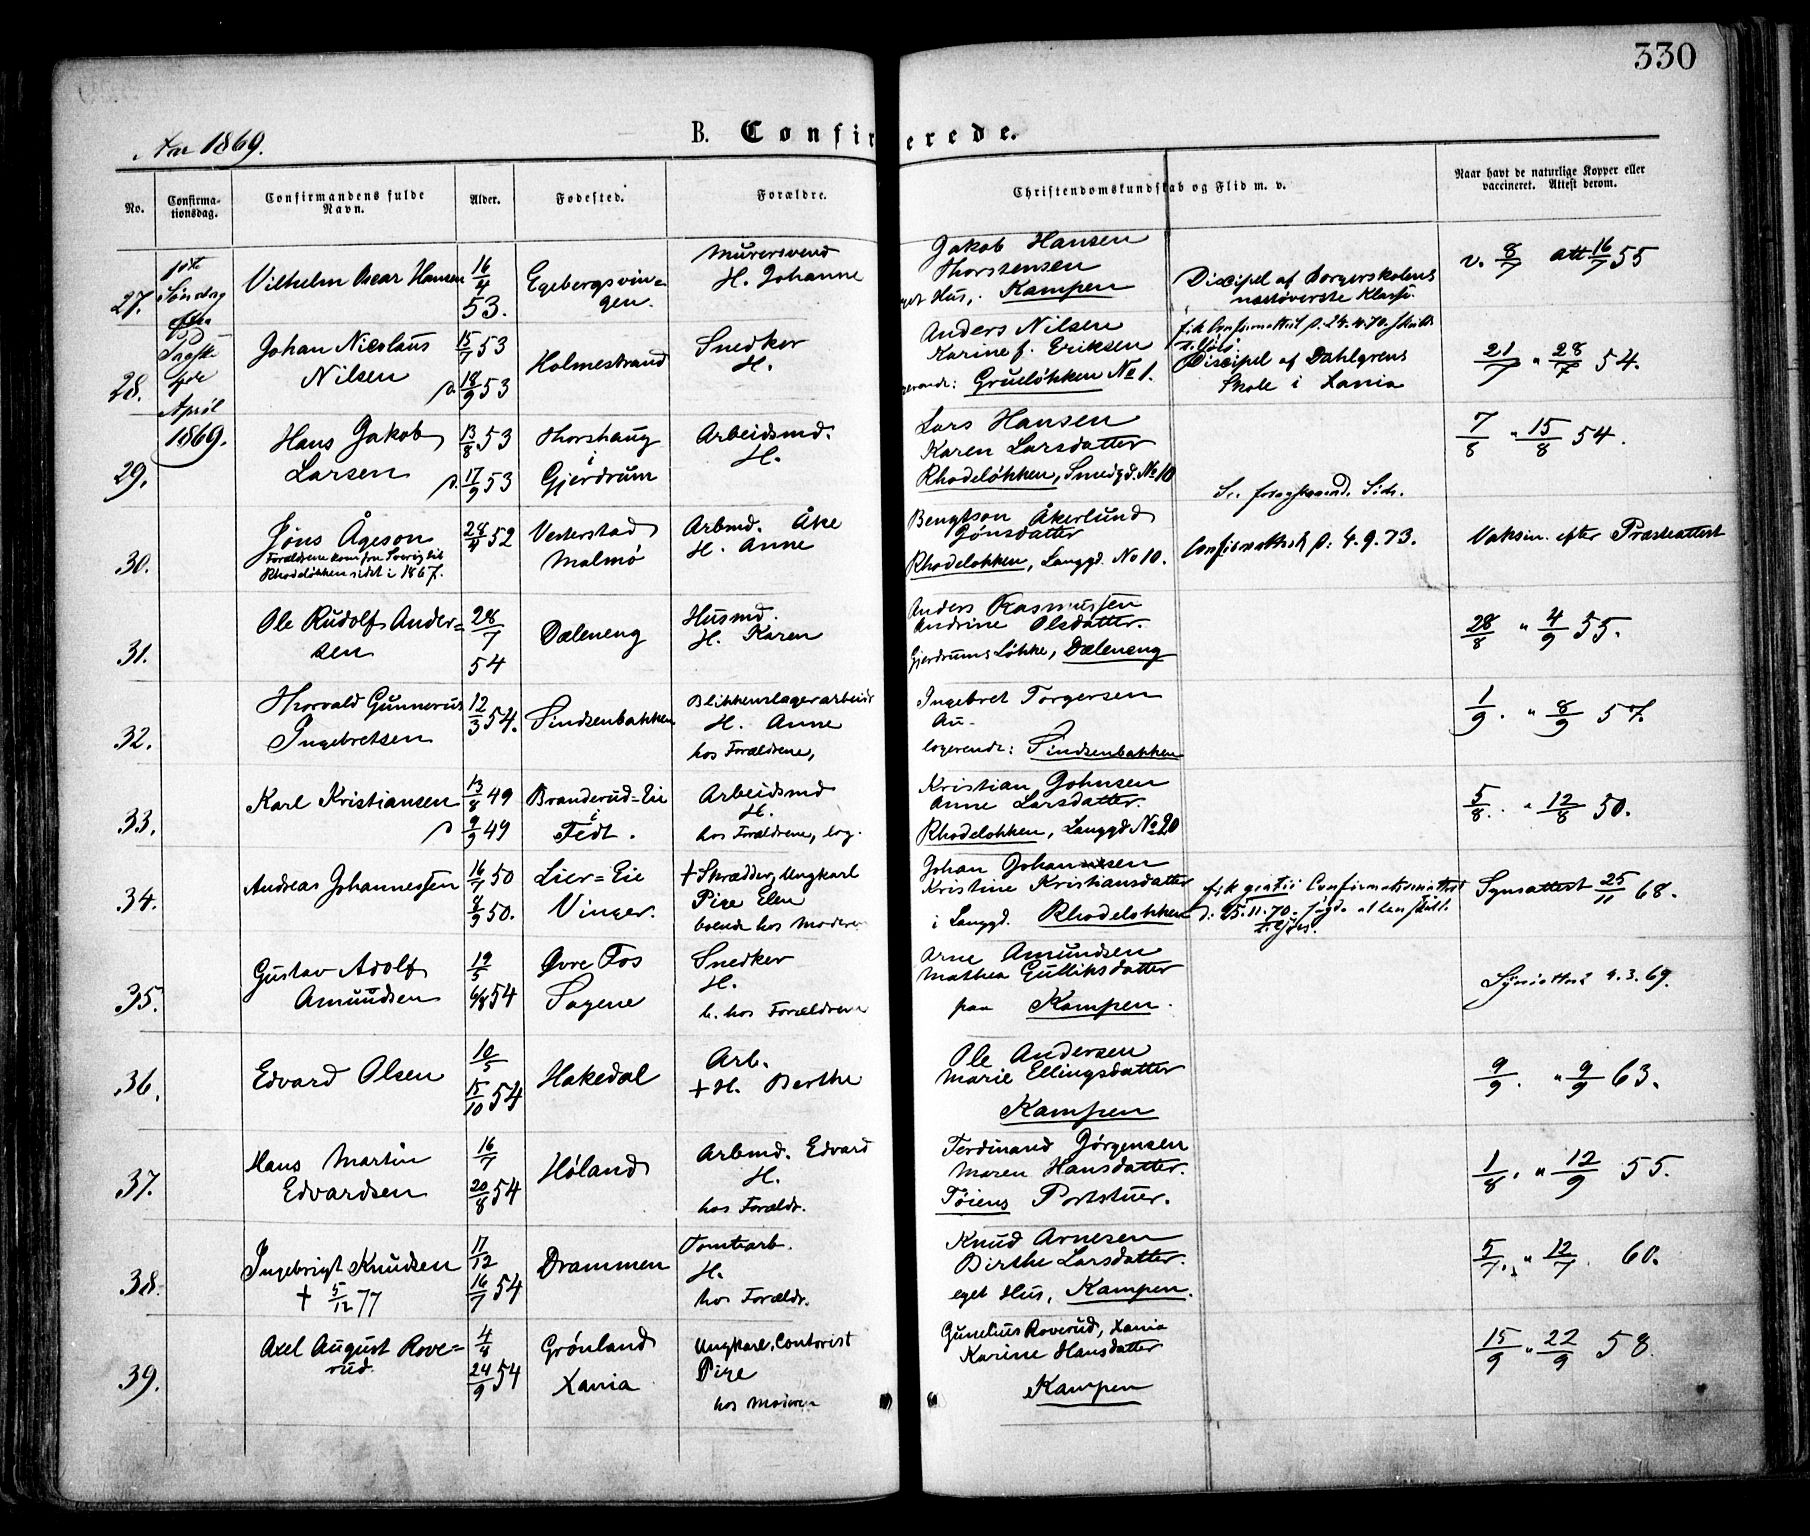 330
Aar 1869.
B. Confirmerede.
No.
Confirma-
tionsdag.
Confirmandens fulde
Navn.
Alder.
Fødested.
Forældre.
Christendomskundskab og Flid m. v.
Naar havt de naturlige Kopper eller
vaccineret. Attest derom.
1ste
Søndag
efter
Paaske
April
1869.
27.
Vilhelm Oscar Hansen
16/4
53.
Egebergsvin=
gen.
Murersvend Jakob Hansen
H. Johanne Thorstensen
eget Hus, Kampen
Discipel af Borgerskolens
næstøverste Klasse.
v. 8/7 att 16/7 55
28.
Johan Nicolaus
Nilsen
15/7 53
d. 18/9 53
Holmestrand
Snedker Anders Nilsen
H. Karine f. Eriksen
logerende: Grueløkken No 1.
fik Confirmattest d. 24.4.70.
Discipel af Dahlgrens
Skole i Xania
21/7 " 28/7 54.
29.
Hans Jakob
Larsen
13/8 53
d. 17/9 53
Thorshaug
i
Gjerdrum
Arbeidsmd. Lars Hansen
H. Karen Larsdatter
Rhodeløkken, Smedgd. No 10
Se foregaaende Side.
7/8 " 15/8 54.
30.
Jøns Ågeson
Forældrene kom fra Sverig til
Rhodeløkken sidst i 1867.
28/4 52
Vesterstad
Malmø
Arbmd. Åke Bengtson Åkerlund
H. Anne Jønsdatter
Rhodeløkken, Langgd. No 10.
Confirmattest d. 4.9.73.
Vaksin. efter Præsteattest
31.
Ole Rudolf Ander=
sen
28/7
54
Dæleneng
Husmd. Anders Rasmussen
H. Karen Andrine Olsdatter.
Gjerdrums Løkke, Dæleneng
28/8 " 4/9 55.
32.
Thorvald Gunnerus
Ingebretsen
12/3 54.
Sindsenbakken
Blikkenslagerarbeid Ingebret Torgersen
H. Anne Au-
hos Forældrene, logerende: Sindsenbakken
1/9. " 8/9 57.
33.
Karl Kristiansen
13/8 49
d. 9/9 49
Branderud=Eie
i
Fedt.
Arbeidsmd Kristian Johnsen
H. Anne Larsdatter.
hos Forældrene, log. Rhodeløkken, Langgd No 20
5/8. " 12/8 50.
34.
Andreas Johannessen
16/7 50
8/9 50.
Lier=Eie
Vinger.
+ Skrædder, Ungkarl Johan Johannsen
Pige Elen Kristine Kristiansdatter
boende hos Moderen i Langgd. Rhodeløkken
fik gratis Confirmationsattest
d. 25.11.70.
Synsattest 25/11 68.
35.
Gustav Adolf
Amundsen
19/5
6/8 54
Øvre Fos
Sagene
Snedker Arne Amundsen
H. Mathea Gulliksdatter
b. hos Forældrene paa Kampen.
Synsattest 4.3.69.
36.
Edvard Olsen
10/5
15/10 54
Hakedal
Arb. Ole Andersen
+ H. Berthe Marie Ellingsdatter
Kampen
9/9. " 9/9 63.
37.
Hans Martin
Edvardsen
16/7
20/8 54
Høland
Arbmd. Edvard Ferdinand Jørgensen
H. Maren Hansdatter.
hos Forældr. Tøiens Portstuer.
1/8. " 12/9 55.
38.
Ingebrigt Knudsen
+ 5/12 77
17/12
16/7 54
Drammen
Tomtearb. Knud Arnesen
H. Birthe Larsdatter.
hos Forældr. eget Hus, Kampen.
5/7. " 12/7 60.
39.
Axel August Rove=
rud.
4/4
24/9 54
Grønland
Xania
Ungkarl, Contorist Gunelius Roverud, Xania
Pige Karine Hansdatter
hos Moderen Kampen
15/9 " 22/9 58.